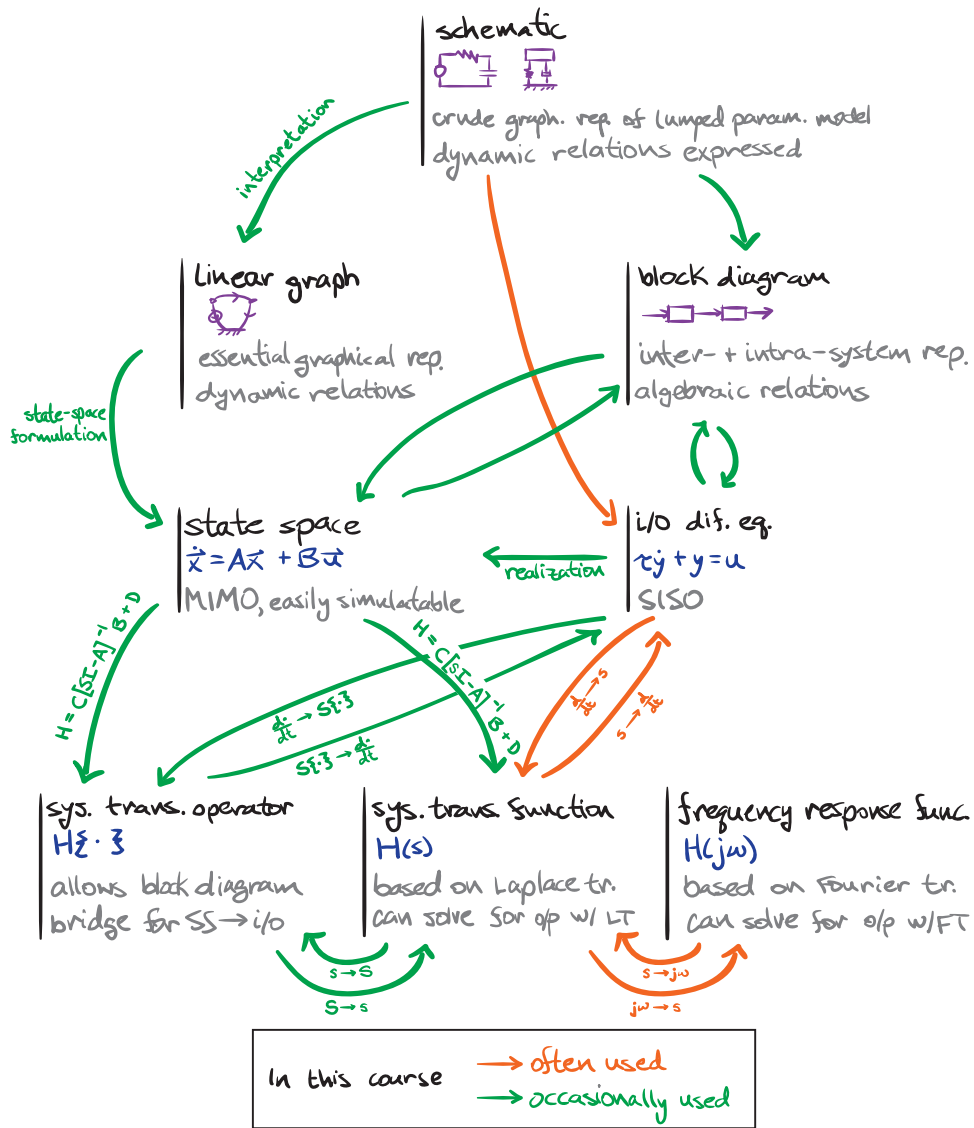 schematic
crude graph. rep. of lumped param. model
dynamic relations expressed
interpretation
linear graph
essential graphical rep.
dynamic relations
block diagram
inter- + intra-system rep.
algebraic relations
state-space
formulation
state space
ẋ⃗ = Ax⃗ + Bu⃗
MIMO, easily simulatable
realization
i/o dif. eq.
τẏ + y = u
SISO
H = C[SI-A]⁻¹ B + D
H = C[sI-A]⁻¹ B + D
d·/dt → S{·}
S{·} → d·/dt
d·/dt → s
s → d·/dt
sys. trans. operator
H{·}
allows block diagram
bridge for SS → i/o
sys. trans. function
H(s)
based on Laplace tr.
can solve for o/p w/ LT
frequency response func.
H(jω)
based on Fourier tr.
can solve for o/p w/FT
s → S
S → s
s → jω
jω → s
In this course
→ often used
→ occasionally used